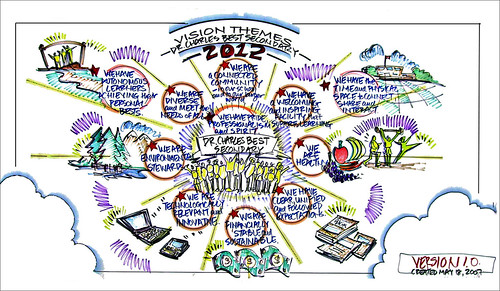 VISION THEMES
DR. CHARLES BEST SECONDARY
2012
WE HAVE
AUTONOMOUS
LEARNERS
ACHIEVING their
PERSONAL
BESTS.
WE ARE
DIVERSE
and MEET the
NEEDS OF ALL
WE ARE
A CONNECTED
COMMUNITY
in our school
WE HAVE
WELCOMING
and INSPIRING
FACILITY that
SUPPORTS LEARNING
WE HAVE the
TIME and PHYSICAL
SPACE to CONNECT,
SHARE and
INTERACT
WE HAVE PRIDE,
PROFESSIONALISM
and SPIRIT
WE ARE
ENVIRONMENTAL
STEWARDS
DR. CHARLES BEST
SECONDARY
WE
ARE
HEALTHY
WE ARE
TECHNOLOGICALLY
RELEVANT and
INNOVATIVE.
WE ARE
FINANCIALLY
STABLE and
SUSTAINABLE.
WE HAVE
CLEAR, UNIFIED
and FOLLOWED
EXPECTATIONS.
$ $ $
VERSION 1.0
CREATED MAY 18, 2007